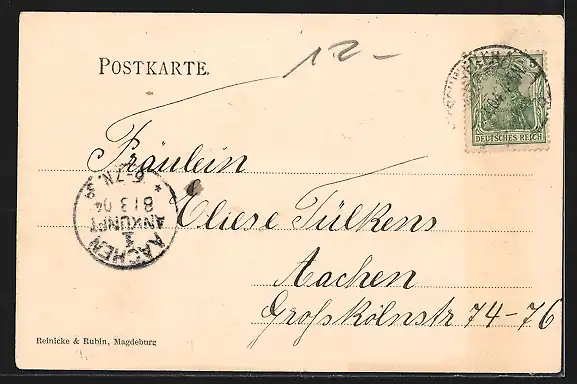 POSTKARTE.
12-
DEUTSCHES REICH
Fräulein
Eliese Tülkens
Aachen
Großkölnstr 74-76
AACHEN
1
ANKUNFT
8 13 04
6-7N.
Reinicke & Rubin, Magdeburg